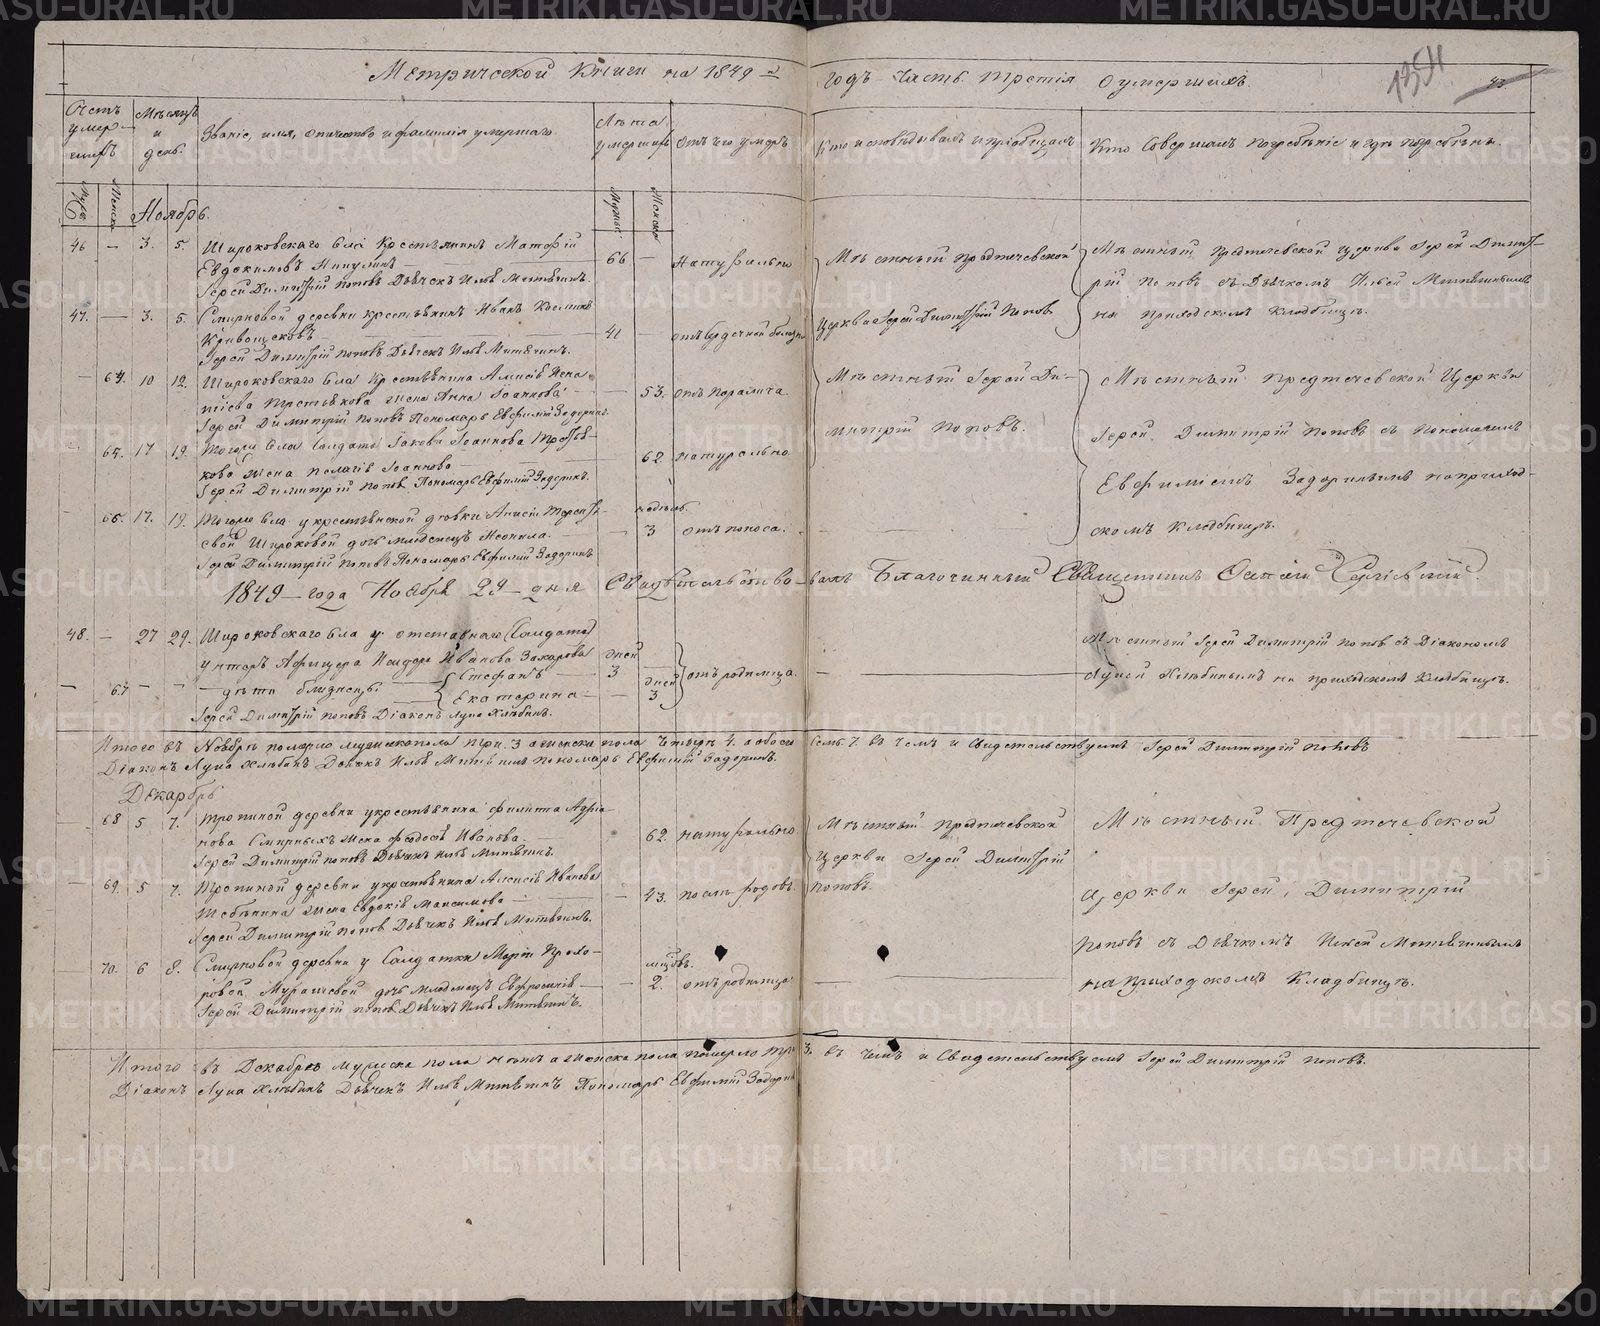 METRIKI.GASO-URAL.RU
Метрической Книги на 1849 й годъ часть третія О умершихъ.
1354
Счетъ умершихъ
Мѣсяцъ и день.
Званіе, имя, отчество и фамилія умершаго.
Лѣта умершихъ
Отъ чего умеръ
Кто исповѣдывалъ и пріобщалъ
Кто Совершалъ погребеніе и гдѣ погребены.
Муж.
Женска
Ноябрь.
Мужской
Женской
46 — 3. 5. Широковскаго села Крестьянинъ Матфій
Евдокимовъ Никулинъ — 66 — Натурально
Іерей Димитрій Поповъ Дьячекъ Илья Митькинъ.
Мѣстный Предтечевской
Церкви Іерей Димитрій Поповъ
Мѣстный Предтечевской Церкви Іерей Димит-
рій Поповъ съ Дьячкомъ Ильей
на приходскомъ Кладбищѣ.
47. — 3. 5. Смирновой деревни крестьянинъ Иванъ
Кривощековъ — 41 отъ болезни
Іерей Димитрій Поповъ Дьячекъ Илья
— 64. 10 12. Широковскаго села Крестьянина
жена Анна Іоаннова — 53. отъ Паралича.
Іерей Димитрій Поповъ Пономарь Евфимій Задоринъ.
Мѣстный Іерей Ди-
митрій Поповъ.
Мѣстный Предтечевской Церкви
Іерей Димитрій Поповъ съ Пономаремъ
Евфиміемъ Задоринымъ на приход-
скомъ Кладбищѣ.
— 65. 17 19. Тогоже села Солдата Іакова Іоаннова
жена Пелагія Іоаннова — 62. натурально
Іерей Димитрій Поповъ Пономарь Евфимій Задоринъ.
— 66. 17. 19. Тогоже села у крестьянской дѣвки
Широковой дочь младенецъ — недѣль. 3 отъ поноса.
Іерей Димитрій Поповъ Пономарь Евфимій Задоринъ
1849 — года Ноября 29 — дня Свидѣтельство-валъ Благочинный Священникъ
48. — 27 29. Широковскаго села у отставнаго Солдата
унтеръ Афицера Иванова Захарова
— 67 — — дѣти близнецы. { Стефанъ — дней 3
Екатерина — дней 3 } отъ родимца.
Іерей Димитрій Поповъ Діаконъ Лука Хлѣбинъ.
Мѣстный Іерей Димитрій Поповъ съ Діакономъ
Лукой Хлѣбинымъ на приходскомъ Кладбищѣ.
Итого въ Ноябрѣ померло мужска пола три. 3 а женска пола четыре 4. а обоего семь 7. въ чемъ и Свидетельствуемъ Іерей Димитрій Поповъ
Діаконъ Лука Хлѣбинъ Дьячекъ Илья Пономарь Евфимій Задоринъ.
Декабрь
68 5 7. деревни у крестьянина Филипа Адріа-
нова Смирныхъ жена Федосья Иванова. — 62. натурально
Іерей Димитрій Поповъ Дьячекъ Илья
Мѣстный Предтечевской
Церкви Іерей Димитрій
Поповъ.
Мѣстный Предтечевской
Церкви Іерей Димитрій
Поповъ съ Дьячкомъ Ильей
на Приходскомъ Кладбищѣ.
— 69. 5 7. деревни у крестьянина Алексія Иванова
жена Евдокія Максимова — 43. послѣ родовъ.
Іерей Димитрій Поповъ Дьячекъ Илья
70. 6 8. Смирновой деревни у Солдатки Маріи Прохо-
ровой дочь младенецъ Евфросинія — мѣсяцовъ. 2. отъ родимца
Іерей Димитрій Поповъ Дьячекъ Илья
Итого въ Декабрѣ мужска пола нѣтъ а женска пола померло три 3. въ чемъ и Свидетельствуемъ Іерей Димитрій Поповъ.
Діаконъ Лука Хлѣбинъ Дьячекъ Илья Пономарь Евфимій Задоринъ